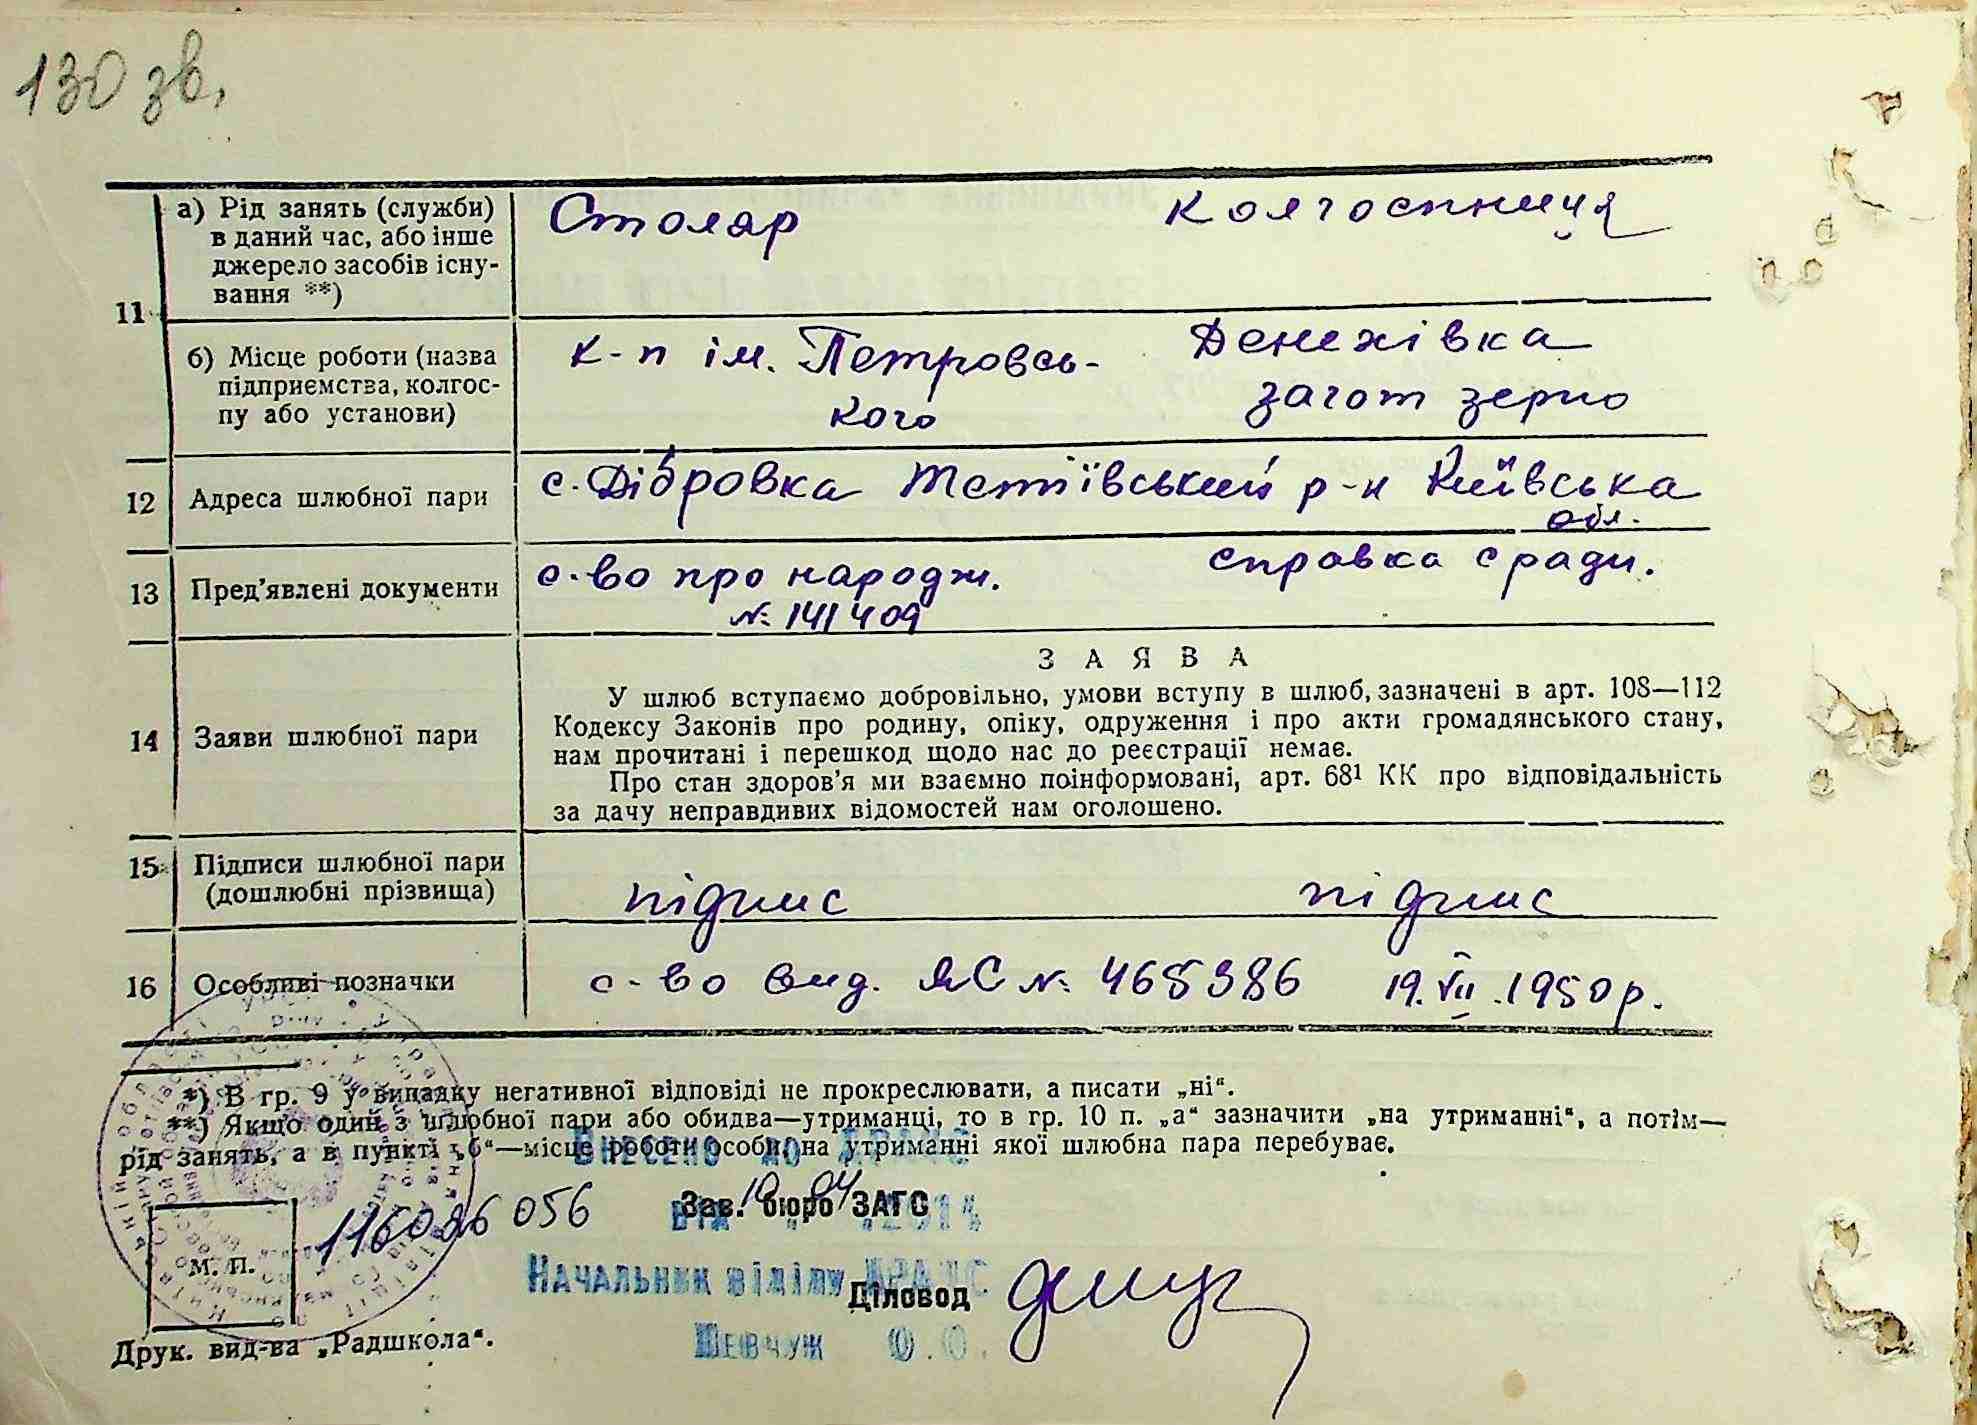 130 зв.
11
а) Рід занять (служби)
в даний час, або інше
джерело засобів існу-
вання **)
Столяр
колгоспниця
б) Місце роботи (назва
підприємства, колгос-
пу або установи)
к-п ім. Петровсь-
кого
Денехівка
загот зерно
12
Адреса шлюбної пари
с. Дібровка Тетіївський р-н Київська
обл.
13
Пред’явлені документи
с-во про народж.
№ 141409
справка с ради.
14
Заяви шлюбної пари
ЗАЯВА
У шлюб вступаємо добровільно, умови вступу в шлюб, зазначені в арт. 108—112
Кодексу Законів про родину, опіку, одруження і про акти громадянського стану,
нам прочитані і перешкод щодо нас до реєстрації немає.
Про стан здоров’я ми взаємно поінформовані, арт. 68¹ КК про відповідальність
за дачу неправдивих відомостей нам оголошено.
15
Підписи шлюбної пари
(дошлюбні прізвища)
підпис
підпис
16
Особливі позначки
с-во вид. ЯС № 465386 19.VII.1950 р.
*) В гр. 9 у випадку негативної відповіді не прокреслювати, а писати „ні“.
**) Якщо один з шлюбної пари або обидва—утриманці, то в гр. 10 п. „а“ зазначити „на утриманні“, а потім—
рід занять, а в пункті „б“—місце роботи особи, на утриманні якої шлюбна пара перебуває.
Внесено до ДРАЦС
Зав. бюро ЗАГС
від 10 04 2014
116026056
М. П.
Начальник відділу ДРАЦС
Діловод
Шевчук О.О.
Друк. вид-ва „Радшкола“.